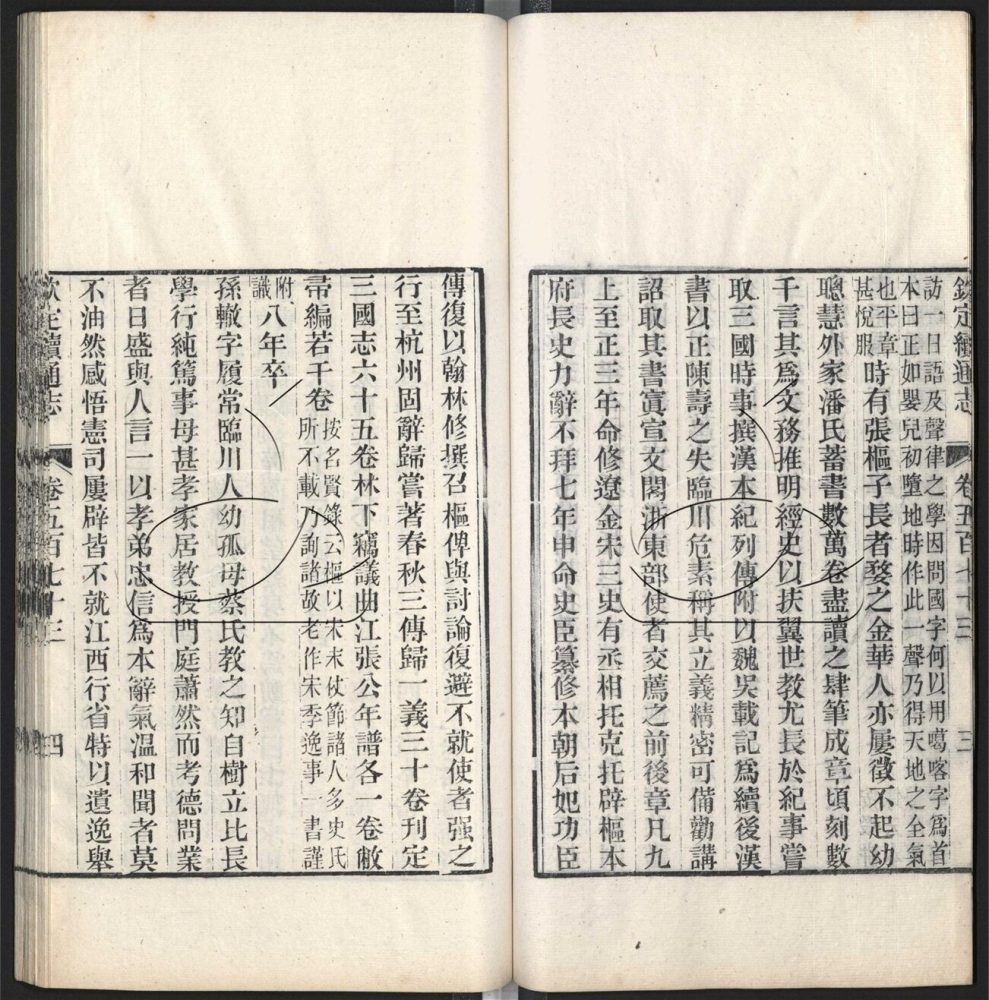 欽定續通志
卷五百七十三
三
訪一日語及聲律之學因問國字何以用噶喀字爲首
本曰正如嬰兒初墮地時作此一聲乃得天地之全氣
也平章
甚悅服
時有張樞子長者婺之金華人亦屢徵不起幼
聰慧外家潘氏蓄書數萬卷盡讀之肆筆成章頃刻數
千言其爲文務推明經史以扶翼世教尤長於紀事嘗
取三國時事撰漢本紀列傳附以魏吳載記爲續後漢
書以正陳壽之失臨川危素稱其立義精密可備勸講
詔取其書寘宣文閣浙東部使者交薦之前後章凡九
上至正三年命修遼金宋三史有丞相托克托辟樞本
府長史力辭不拜七年申命史臣纂修本朝后妃功臣
傳復以翰林修撰召樞俾與討論復避不就使者强之
行至杭州固辭歸嘗著春秋三傳歸一義三十卷刊定
三國志六十五卷林下竊議曲江張公年譜各一卷敝
帚編若干卷
按名賢錄云樞以宋末仗節諸人多史氏
所不載乃詢諸故老作宋季逸事一書謹
附
識
八年卒
孫轍字履常臨川人幼孤母蔡氏教之知自樹立比長
學行純篤事母甚孝家居教授門庭蕭然而考德問業
者日盛與人言一以孝弟忠信爲本辭氣溫和聞者莫
不油然感悟憲司屢辟皆不就江西行省特以遺逸舉
欽定續通志
卷五百七十三
四